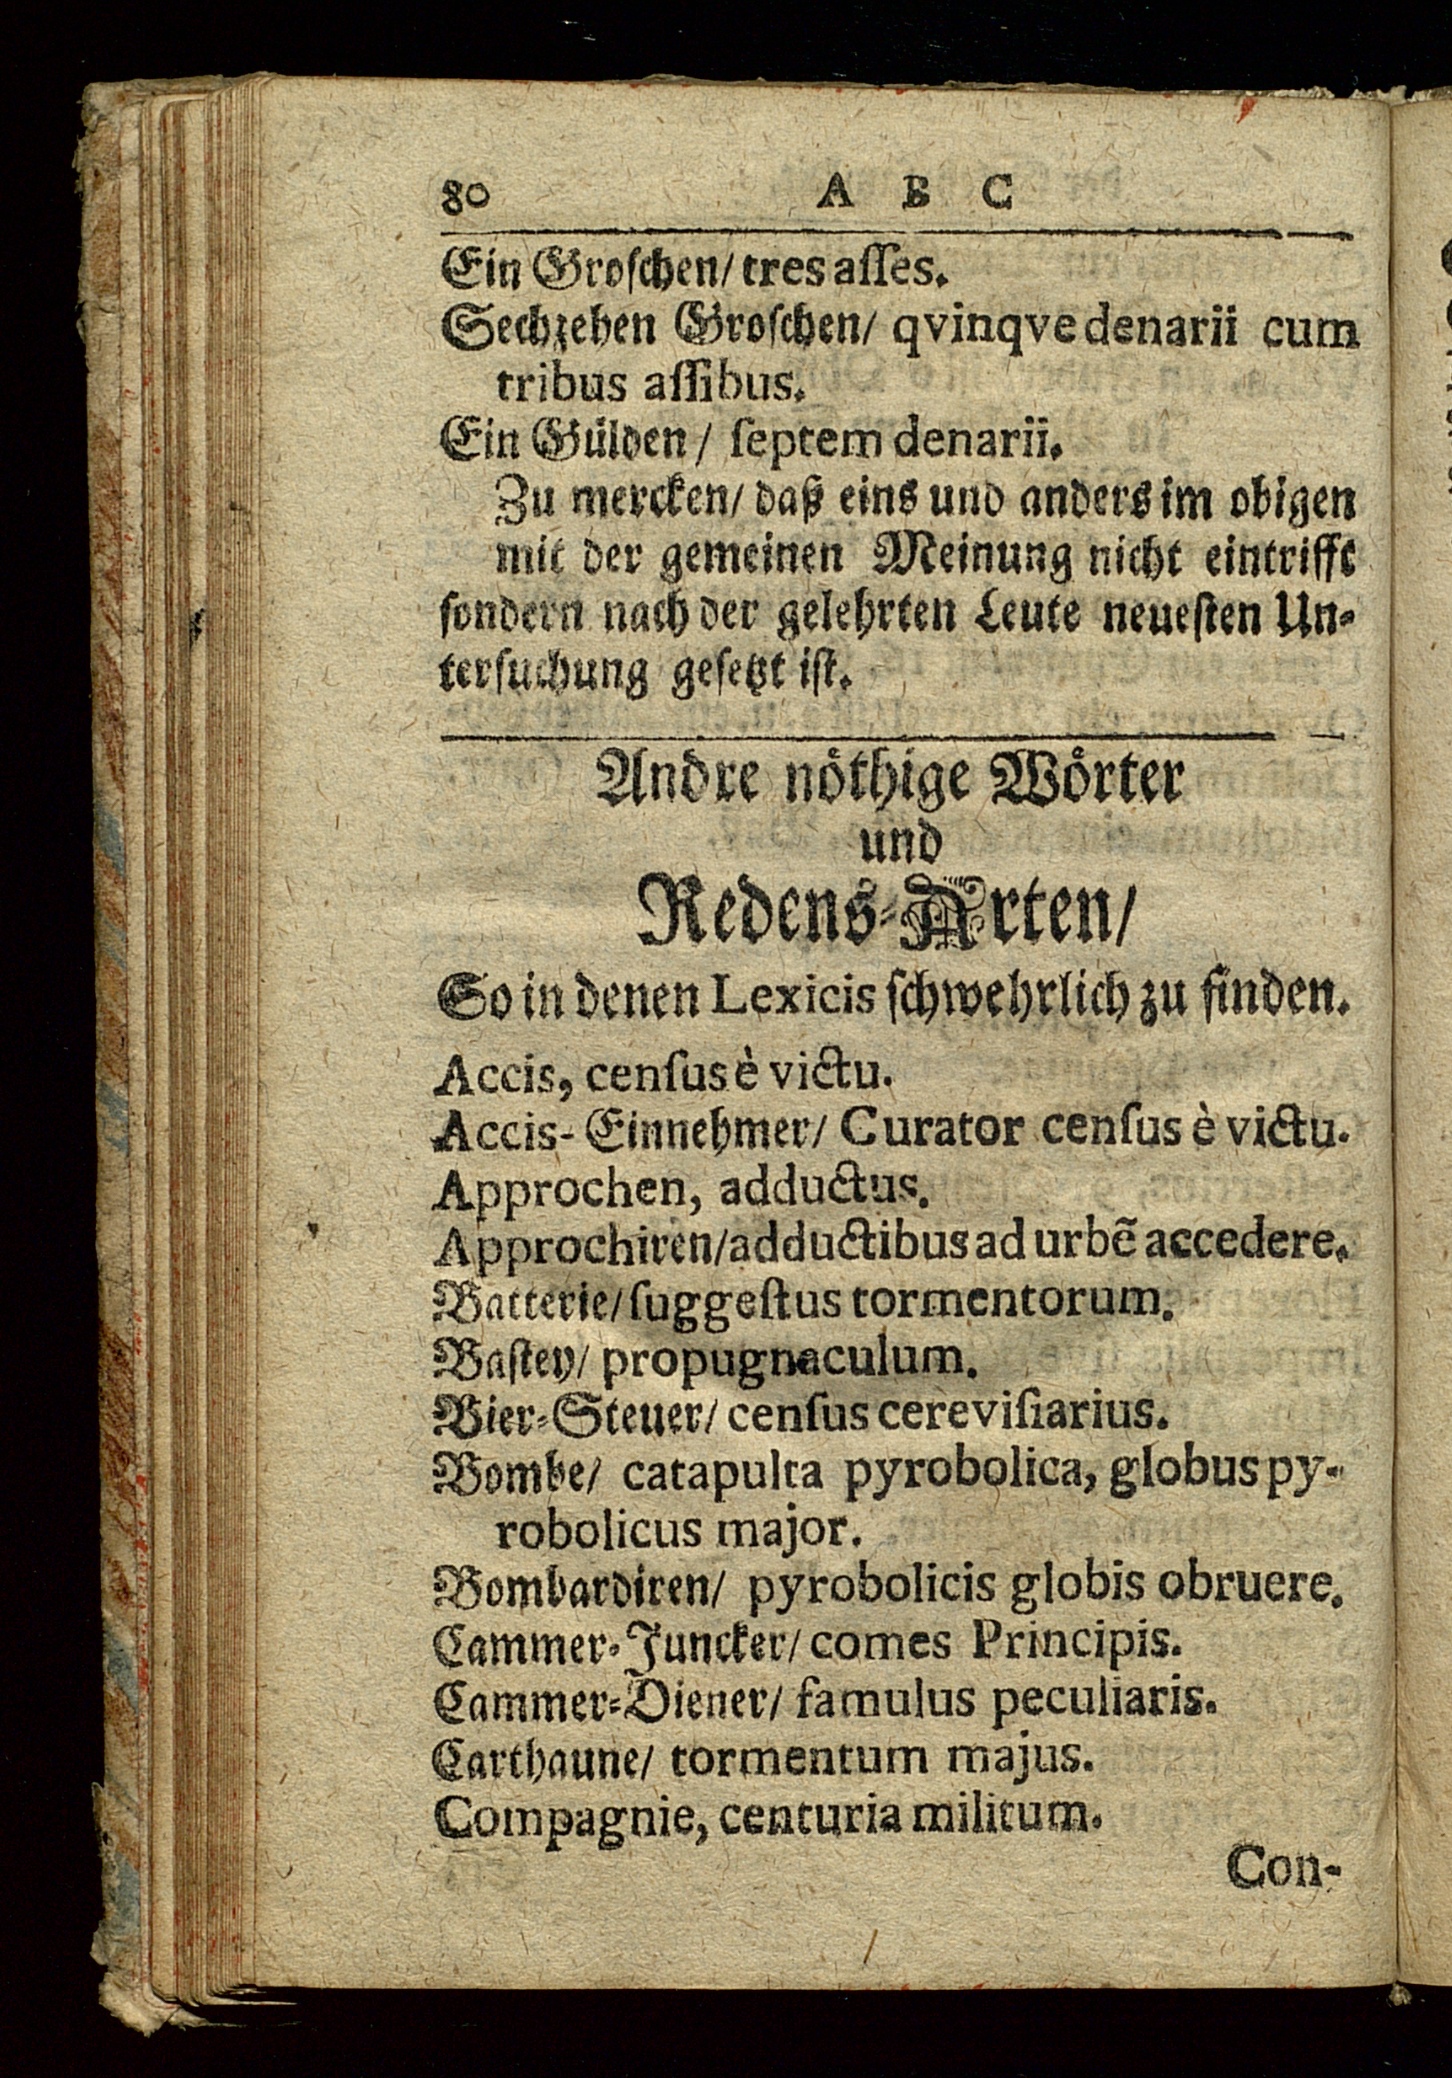 80 A B C
Ein Groſchen/ tres aſſes.
Sechzehen Groſchen/ qvinqve denarii cum
tribus aſſibus.
Ein Gülden/ ſeptem denarii.
Zu mercken/ daß eins und anders im obigen
mit der gemeinen Meinung nicht eintrifft
ſondern nach der gelehrten Leute neueſten Un-
terſuchung geſetzt iſt.
Andre nöthige Wörter
und
Redens-Arten/
So in denen Lexicis ſchwehrlich zu finden.
Accis, cenſus è victu.
Accis-Einnehmer/ Curator cenſus è victu.
Approchen, adductus.
Approchiren/ adductibus ad urbẽ accedere.
Batterie/ ſuggeſtus tormentorum.
Baſtey/ propugnaculum.
Bier-Steuer/ cenſus cereviſiarius.
Bombe/ catapulta pyrobolica, globus py-
robolicus major.
Bombardiren/ pyrobolicis globis obruere.
Cammer-Juncker/ comes Principis.
Cammer-Diener/ famulus peculiaris.
Carthaune/ tormentum majus.
Compagnie, centuria militum.
Con-